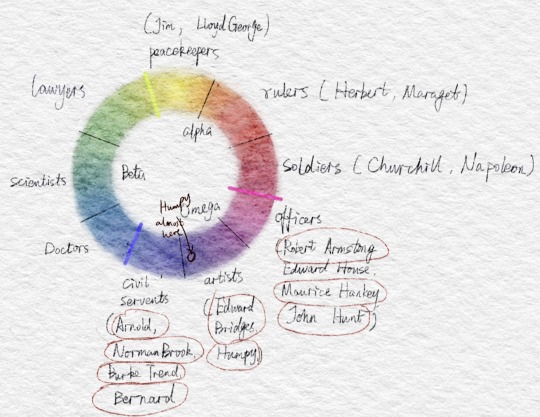 (Jim, Lloyd George)
peacekeepers
lawyers
rulers (Herbert, Maraget)
alpha
soldiers (Churchill, Napoleon)
scientists
Beta
Humpy
almost
here
Omega
officers
(Robert Armstong
Edward House,
Maurice Hankey
John Hunt)
Doctors
civil
servents
(Arnold,
Norman Brook,
Burke Trend,
Bernard
artists
(Edward
Bridges,
Humpy)